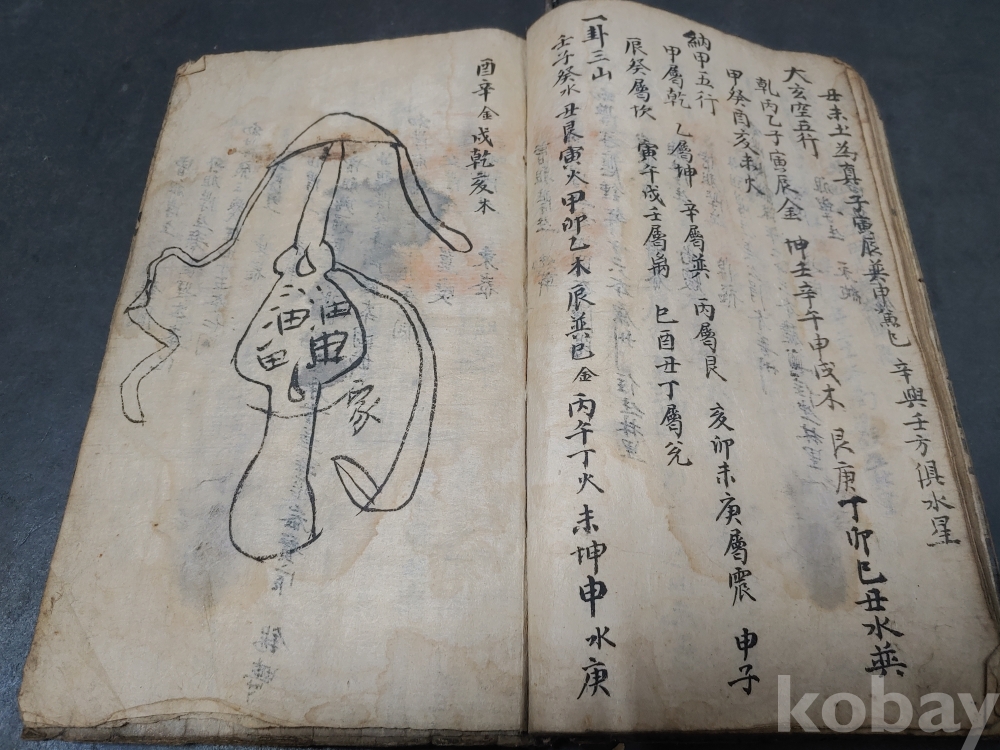 丑未土為真子寅辰巽申
辛與壬方俱水星
大玄空五行
乾丙乙子寅辰金 坤壬辛午申戌木 艮庚丁卯巳丑水巽
甲癸酉亥未火
納甲五行
甲屬乾 乙屬坤 辛屬巽 丙屬艮 亥卯未庚屬震 申子
辰癸屬坎 寅午戌壬屬离 巳酉丑丁屬兌
一卦三山
壬子癸水丑艮寅火甲卯乙木辰巽巳金丙午丁火未坤申水庚
酉辛金戌乾亥木
油
田
家
kobay